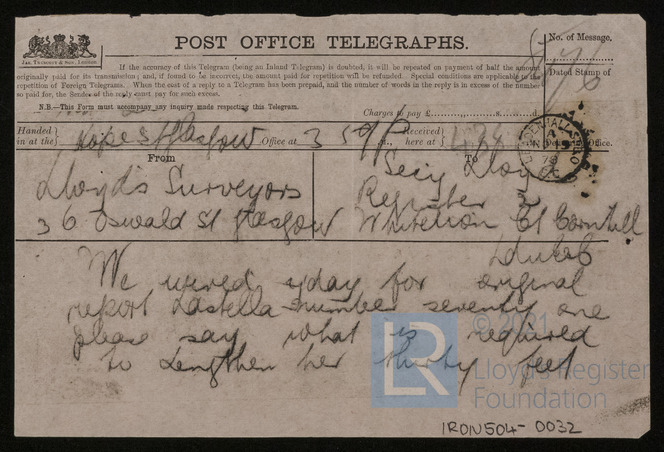 POST OFFICE TELEGRAPHS.
No. of Message.
If the accuracy of this Telegram (being an Inland Telegram) is doubted, it will be repeated on payment of half the amount
originally paid for its transmission; and, if found to be incorrect, the amount paid for repetition will be refunded. Special conditions are applicable to the
repetition of Foreign Telegrams. When the cost of a reply to a Telegram has been prepaid, and the number of words in the reply is in excess of the number
so paid for, the Sender of the reply must pay for such excess.
Dated Stamp of
N.B.—This Form must accompany any inquiry made respecting this Telegram.
Charges to pay £ s. d.
Handed in at the Hope St Glasgow Office at 3 59 P Received here at
Office.
From
To
Lloyd's Surveyors
36 Oswald St Glasgow
Secy Lloyds
Register 2
Whitelion Ct Cornhill
We wired yday for original
report Lastella number seventy one
please say what is required
to Lengthen her thirty feet
LR
© 2021
Lloyd's Register
Foundation
IRON504-0032